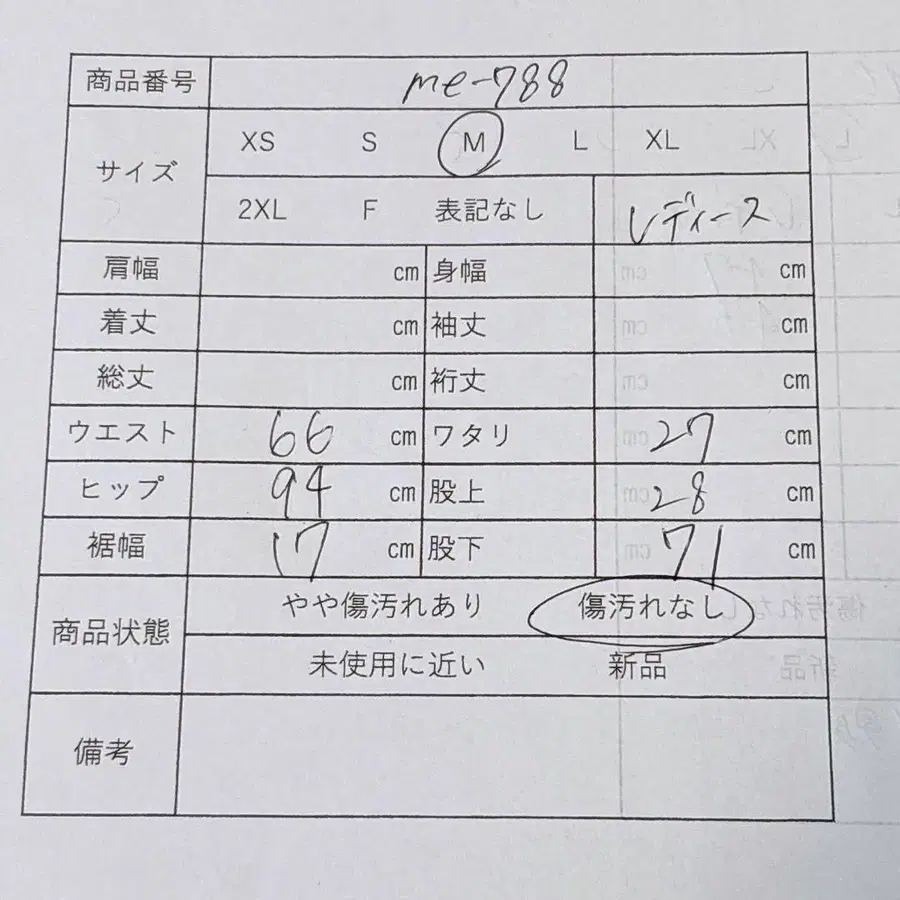 商品番号 me-788
サイズ XS S M L XL
2XL F 表記なし レディース
肩幅 cm 身幅 cm
着丈 cm 袖丈 cm
総丈 cm 裄丈 cm
ウエスト 66 cm ワタリ 27 cm
ヒップ 94 cm 股上 28 cm
裾幅 17 cm 股下 71 cm
商品状態 やや傷汚れあり 傷汚れなし
未使用に近い 新品
備考